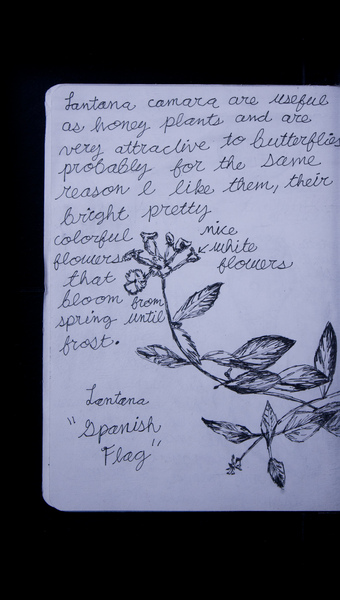 Lantana camara are useful
as honey plants and are
very attractive to butterflies
probably for the same
reason I like them, their
bright pretty
colorful
flowers
that
bloom from
spring until
frost.
nice
white
flowers
Lantana
"Spanish
Flag"